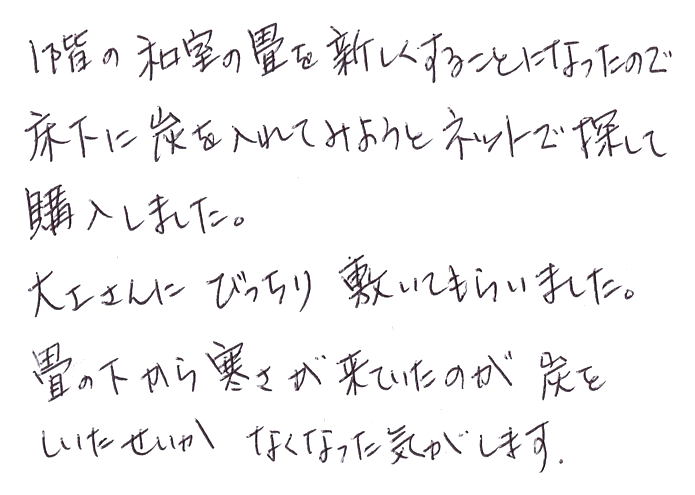 1階の和室の畳を新しくすることになったので
床下に炭を入れてみようとネットで探して
購入しました。
大工さんにびっちり敷いてもらいました。
畳の下から寒さが来ていたのが炭を
しいたせいかなくなった気がします.